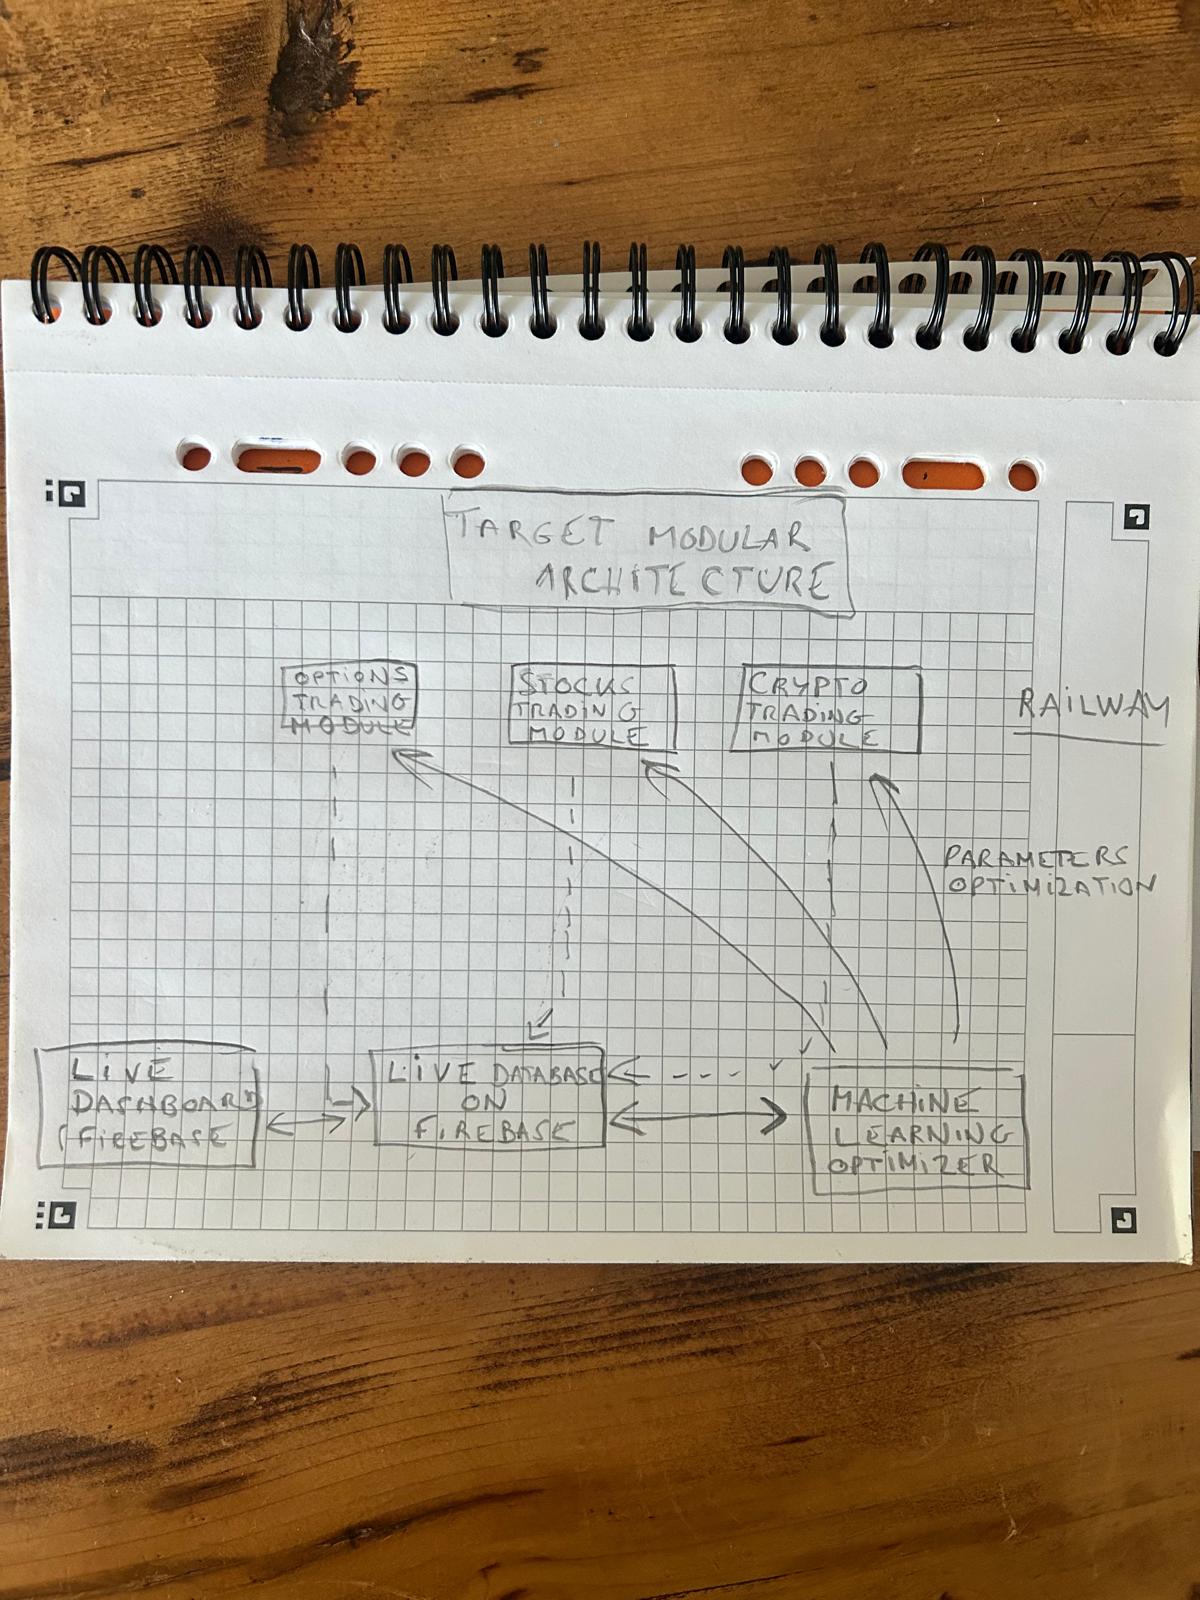 TARGET MODULAR
ARCHITECTURE
OPTIONS
TRADING
MODULE
STOCKS
TRADING
MODULE
CRYPTO
TRADING
MODULE
RAILWAY
PARAMETERS
OPTIMIZATION
LIVE
DASHBOARD
(FIREBASE
LIVE DATABASE
ON
FIREBASE
MACHINE
LEARNING
OPTIMIZER